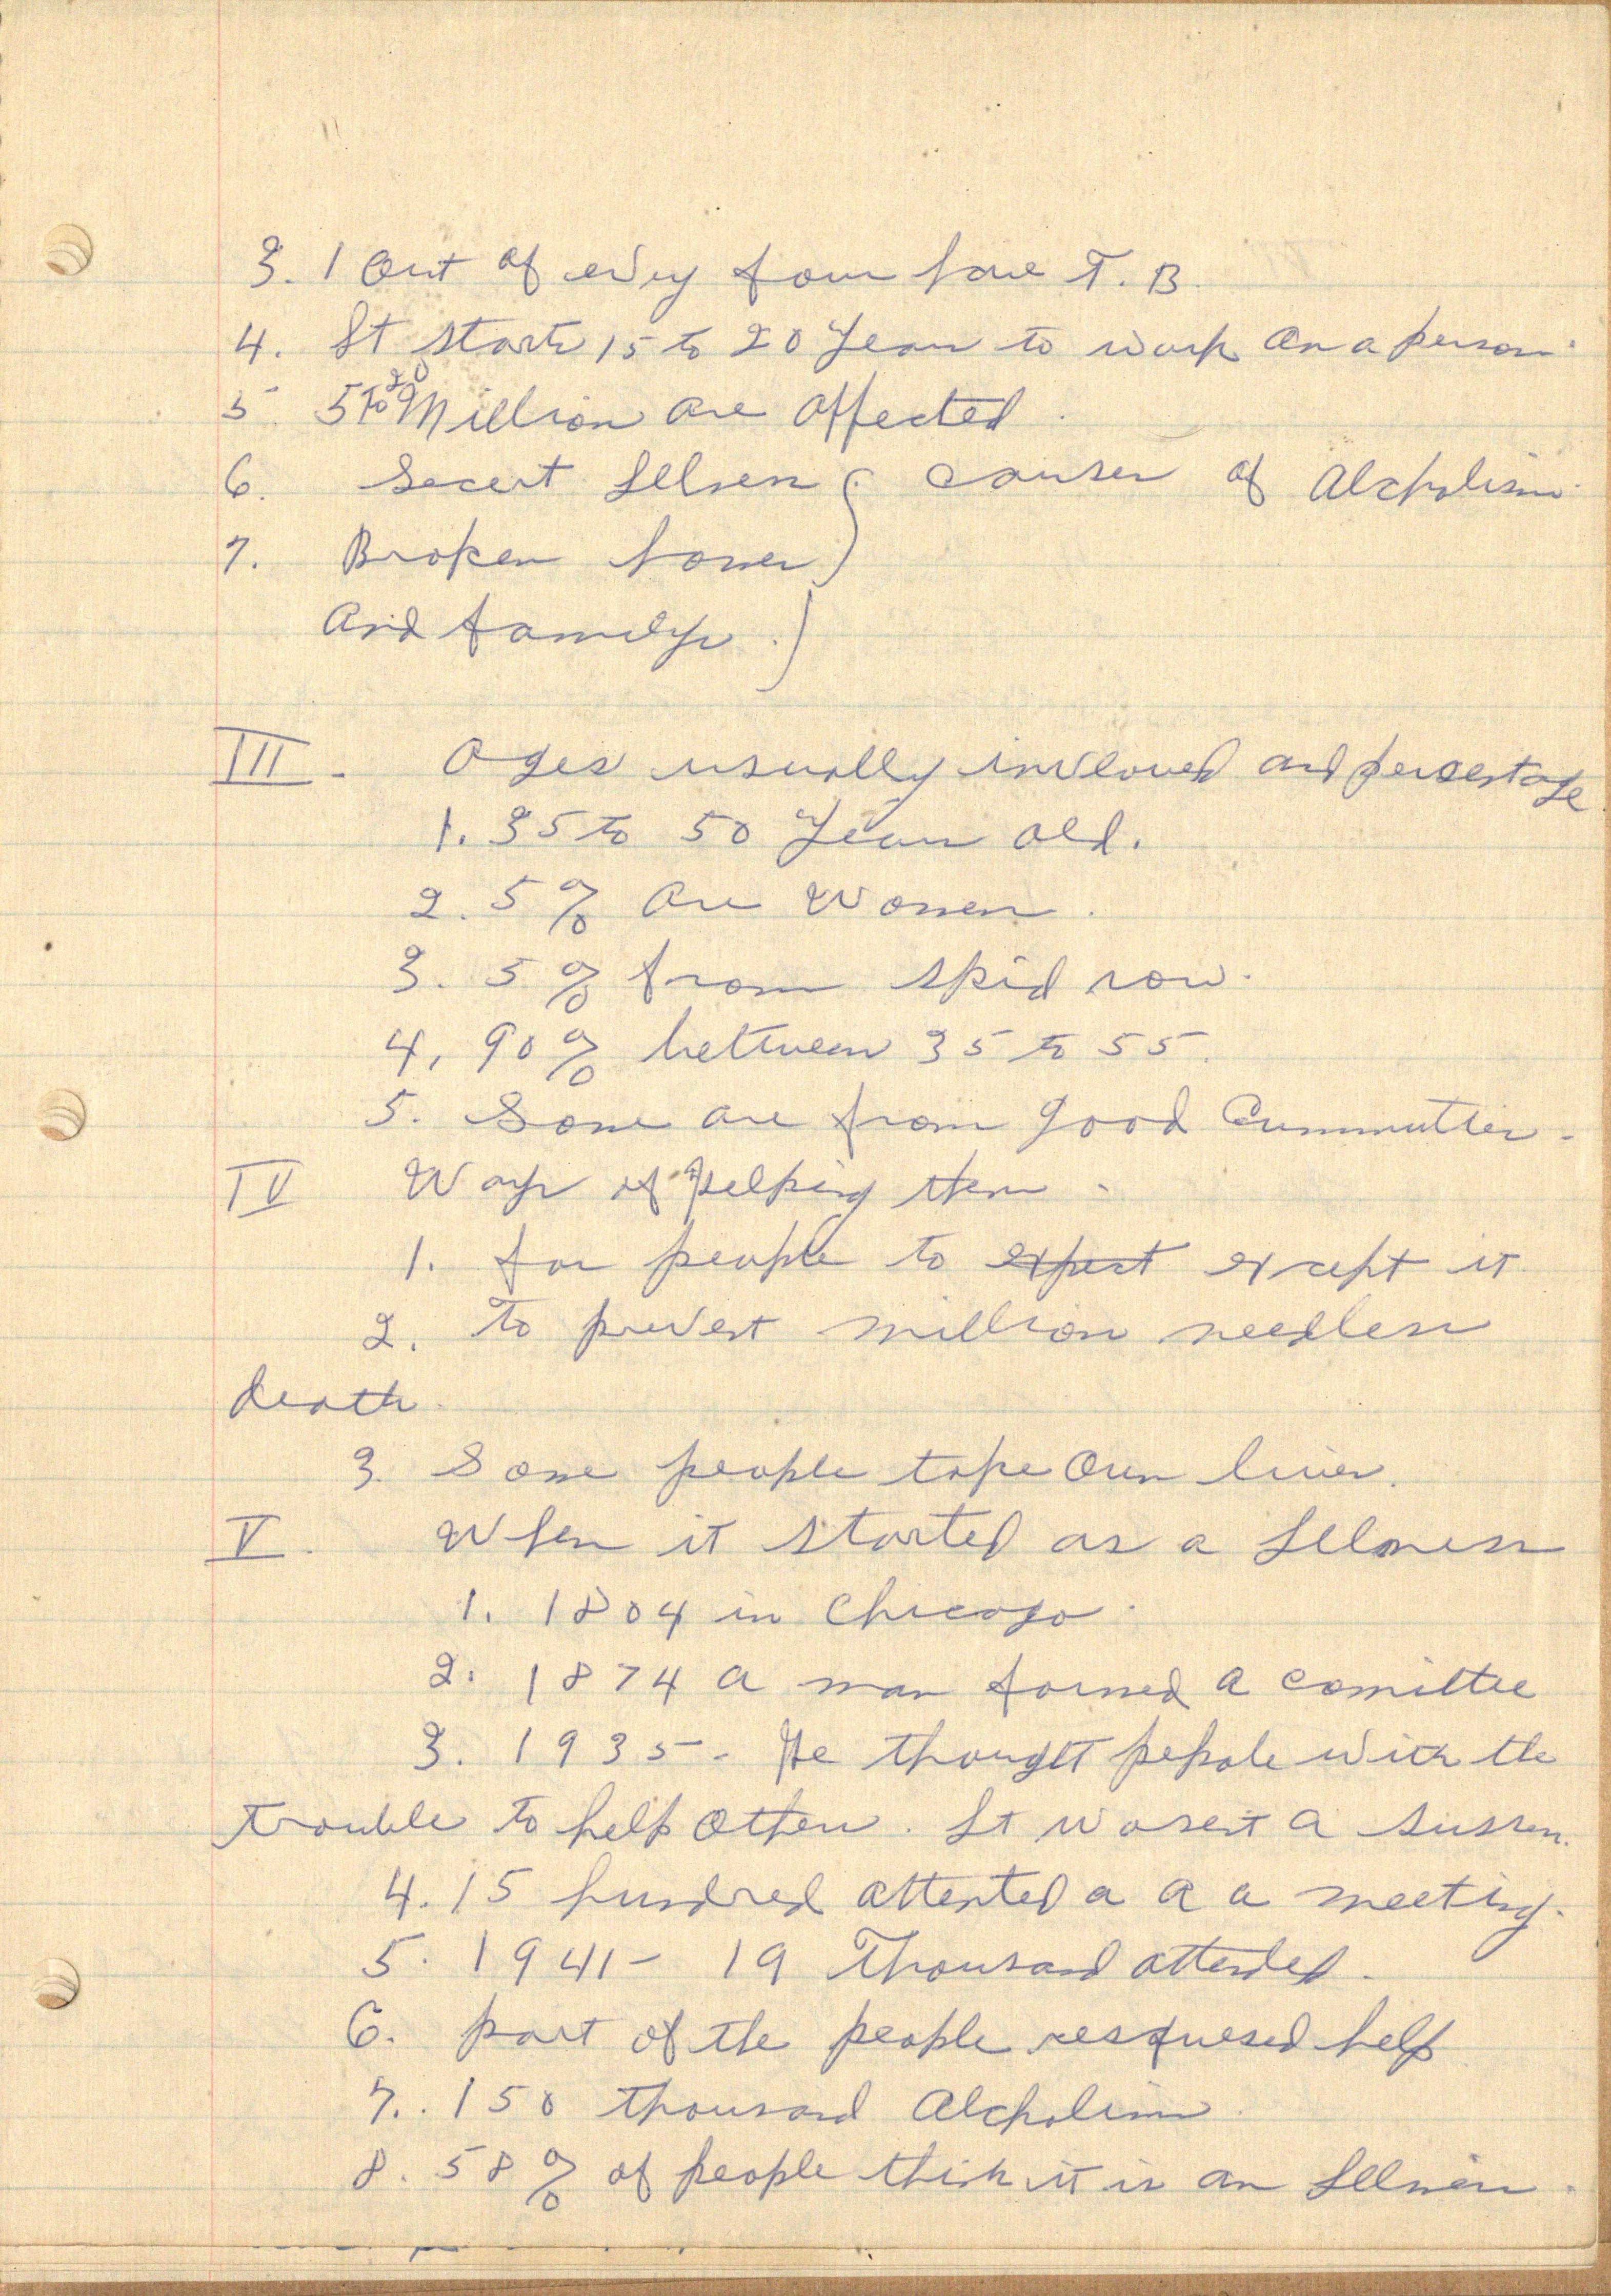 3. 1 Out of every four have T. B.
4. It starts 15 to 20 years to work on a person.
5 5 to 20 Million are affected.
6. Secert Illness } causes of Alcholism.
7. Broken homes
and familys.
III. Ages usually invloved and percentage
1. 35 to 50 years old.
2. 5% are Women.
3. 5% from skid row.
4. 90% between 35 to 55.
5. Some are from good
IV Ways of helping them.
1. for people to expect except it
2. To prevent million needless
death.
3. Some people take own lives.
V. When it started as a Illness
1. 1804 in Chicago.
2. 1874 a man formed a comittee
3. 1935 - He thought pepole with the
trouble to help others. It wasent a
4. 15 hundred attented a a a meeting.
5. 1941 - 19 Thousand attended.
6. part of the people help
7. 150 thousand Alcholism.
8. 58% of people think it is an Illness.